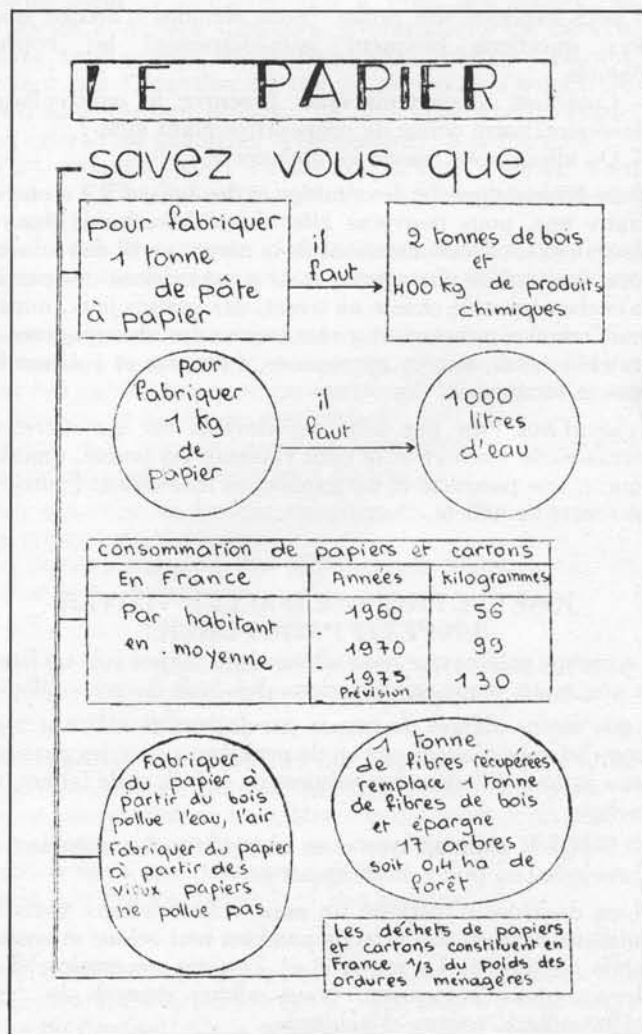 LE PAPIER
savez vous que
pour fabriquer
1 tonne
de pâte
à papier
il
faut
2 tonnes de bois
et
400 kg de produits
chimiques
pour
fabriquer
1 kg
de
papier
il
faut
1000
litres
d'eau
consommation de papiers et cartons
En France
Par habitant
en moyenne
Années
kilogrammes
1960
56
1970
99
1975
130
Prévision
Fabriquer
du papier à
partir du bois
pollue l'eau, l'air
Fabriquer du papier
à partir des
vieux papiers
ne pollue pas
1 tonne
de fibres récupérées
remplace 1 tonne
de fibres de bois
et épargne
17 arbres
soit 0,4 ha de
forêt
Les déchets de papiers
et cartons constituent en
France 1/3 du poids des
ordures ménagères